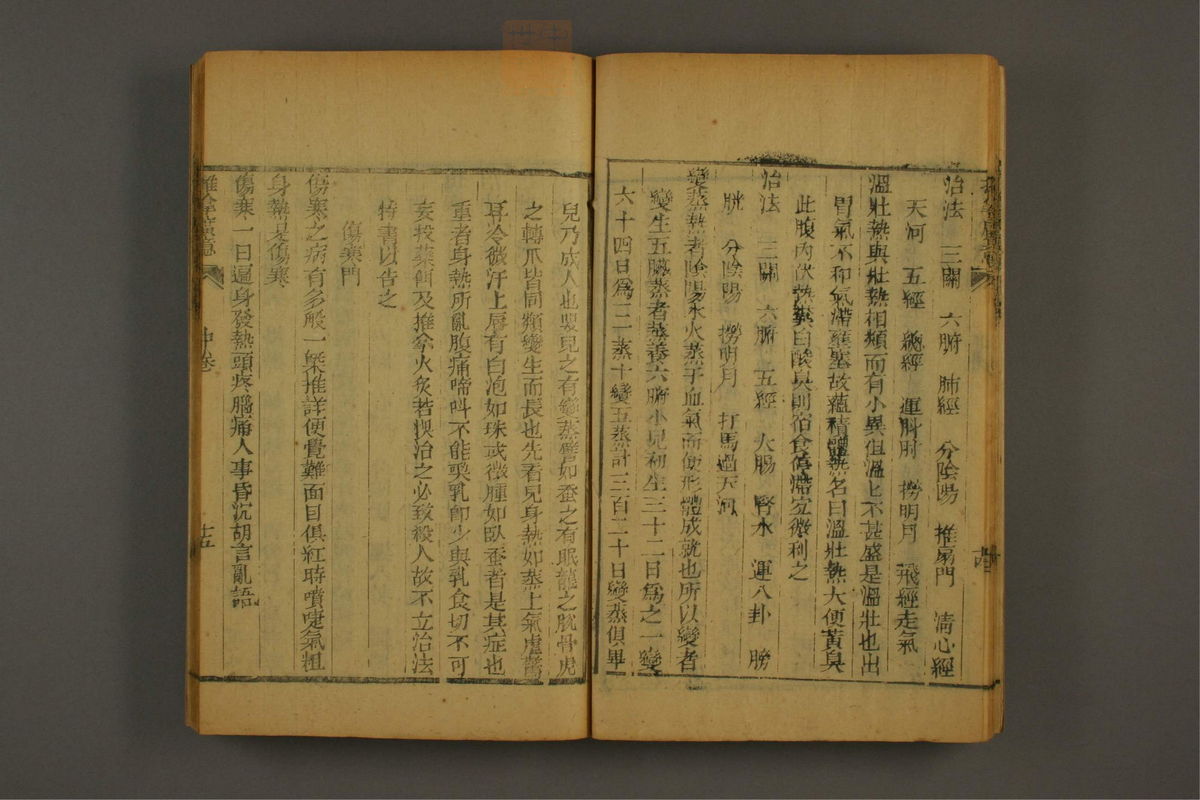 治法 三關 六腑 肺經 分陰陽 推扇門 清心經
天河 五經 總經 運斗肘 撈明月 飛經走氣
溫壯熱與壯熱相類而有小異但溫上不甚盛是溫壯也出
胃氣不和氣滯壅塞故蘊積體熱名曰溫壯熱大便黃臭
此腹内伏熱糞白酸臭則宿食停滯宜微利之
治法 三關 六腑 五經 大腸 腎水 運八卦 膀
胱 分陰陽 撈明月 打馬過天河
變蒸熱者陰陽水火蒸于血氣而使形體成就也所以變者
變生五臟蒸者蒸養六腑小兒初生三十二日為之一變
六十四日為二蒸十變五蒸計三百二十日變蒸俱畢
兒乃成人也嬰兒之有變蒸譬如蚕之有眠龍之脫骨虎
之轉爪皆同類變生而長也先看兒身熱如蒸上氣虛驚
耳冷微汗上唇有白泡如珠或微腫如臥蚕者是其症也
重者身熱所亂腹痛啼叫不能奭乳即少與乳食切不可
妄投藥餌及推拿火炙若悞治之必致殺人故不立治法
特書以告之
傷寒門
傷寒之病有多般一槩推詳便覺難面目俱紅時噴嚏氣粗
身熱是傷寒
傷寒一日遍身發熱頭疼腦痛人事昏沉胡言亂語
中卷
十五